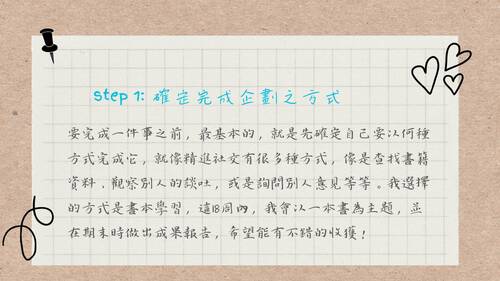 step 1: 確定完成企劃之方式
要完成一件事之前，最基本的，就是先確定自己要以何種
方式完成它，就像精進社交有很多種方式，像是查找書籍
資料、觀察別人的談吐，或是詢問別人意見等等。我選擇
的方式是書本學習，這18周內，我會以一本書為主題，並
在期末時做出成果報告，希望能有不錯的收獲！